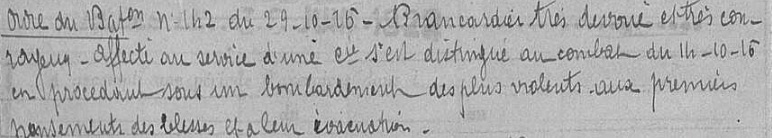 Ordre du Baton n° 142 du 29-10-16 - Brancardier très dévoué et très cou-
rageux - Affecté au service d'une Cie s'est distingué au combat du 14-10-16
en procédant sous un bombardement des plus violents aux premiers
pansements des blessés et à leur évacuation.